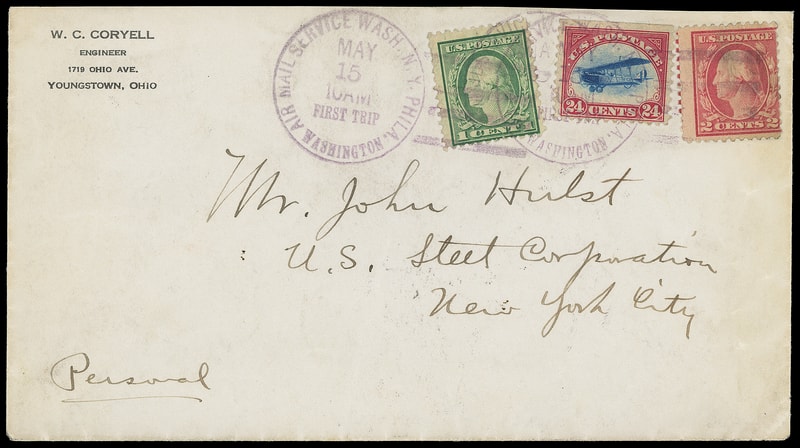 W. C. CORYELL
ENGINEER
1719 OHIO AVE.
YOUNGSTOWN, OHIO
AIR MAIL SERVICE WASH. N. Y. PHILA.
MAY
15
10AM
FIRST TRIP
WASHINGTON
U.S. POSTAGE
1 CENT
U.S. POSTAGE
24 CENTS 24
U.S. POSTAGE
2 CENTS 2
WASHINGTON.
Mr. John Hulst
U.S. Steel Corporation
New York City
Personal